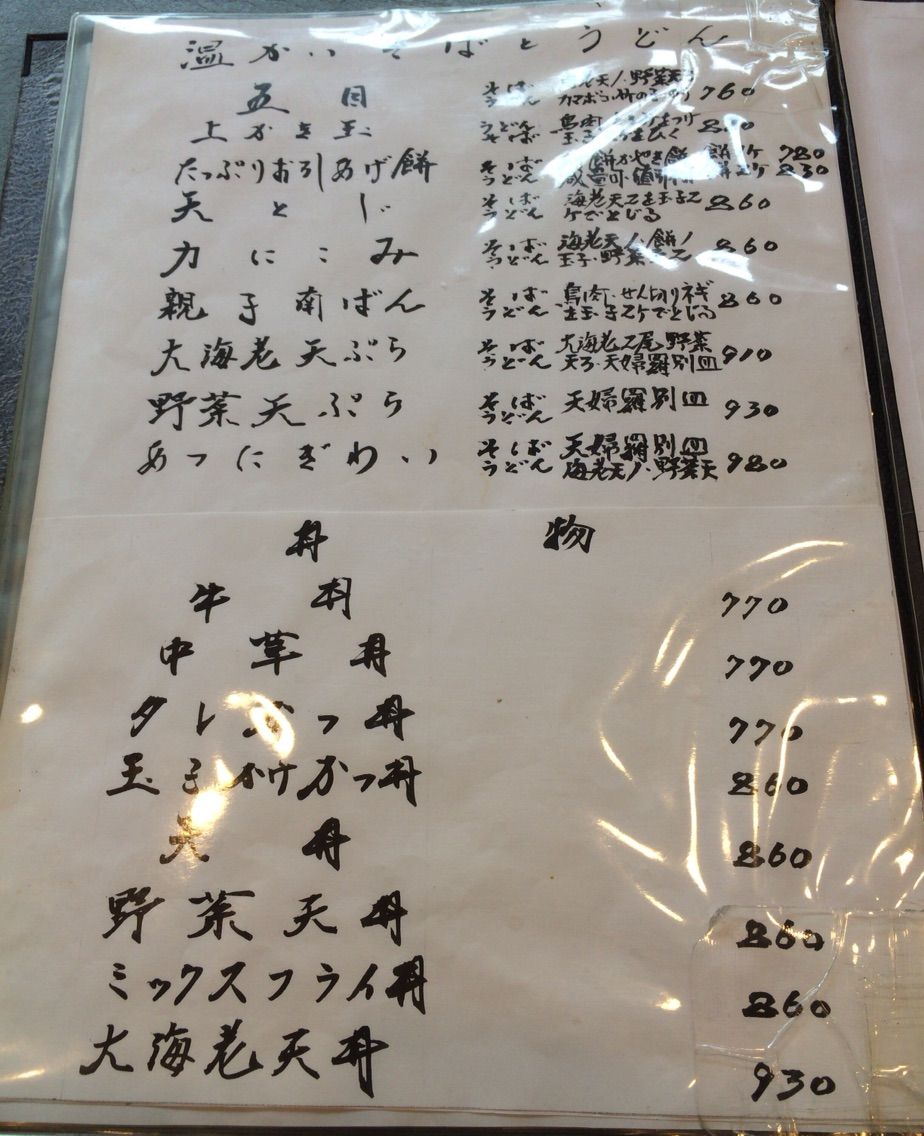 温かいそばとうどん
五目 そば うどん 760
上かき玉 うどん そば 鳥肉
たっぷりお引あげ餅 そば うどん 780 830
天とじ そば うどん 海老天2を玉子2ケでとじる 860
力にこみ そば うどん 海老天1・餅1 玉子・野菜 860
親子南ばん そば うどん 鳥肉 せん切りネギ 玉子2ケでとじる 860
大海老天ぷら そば うどん 大海老2尾野菜天3・天婦羅別皿 910
野菜天ぷら そば うどん 天婦羅別皿 930
あつにぎわい そば うどん 天婦羅別皿 海老天1・野菜天 980
丼物
牛丼 770
中華丼 770
タレかつ丼 770
玉子かけかつ丼 860
天丼 860
野菜天丼 860
ミックスフライ丼 860
大海老天丼 930